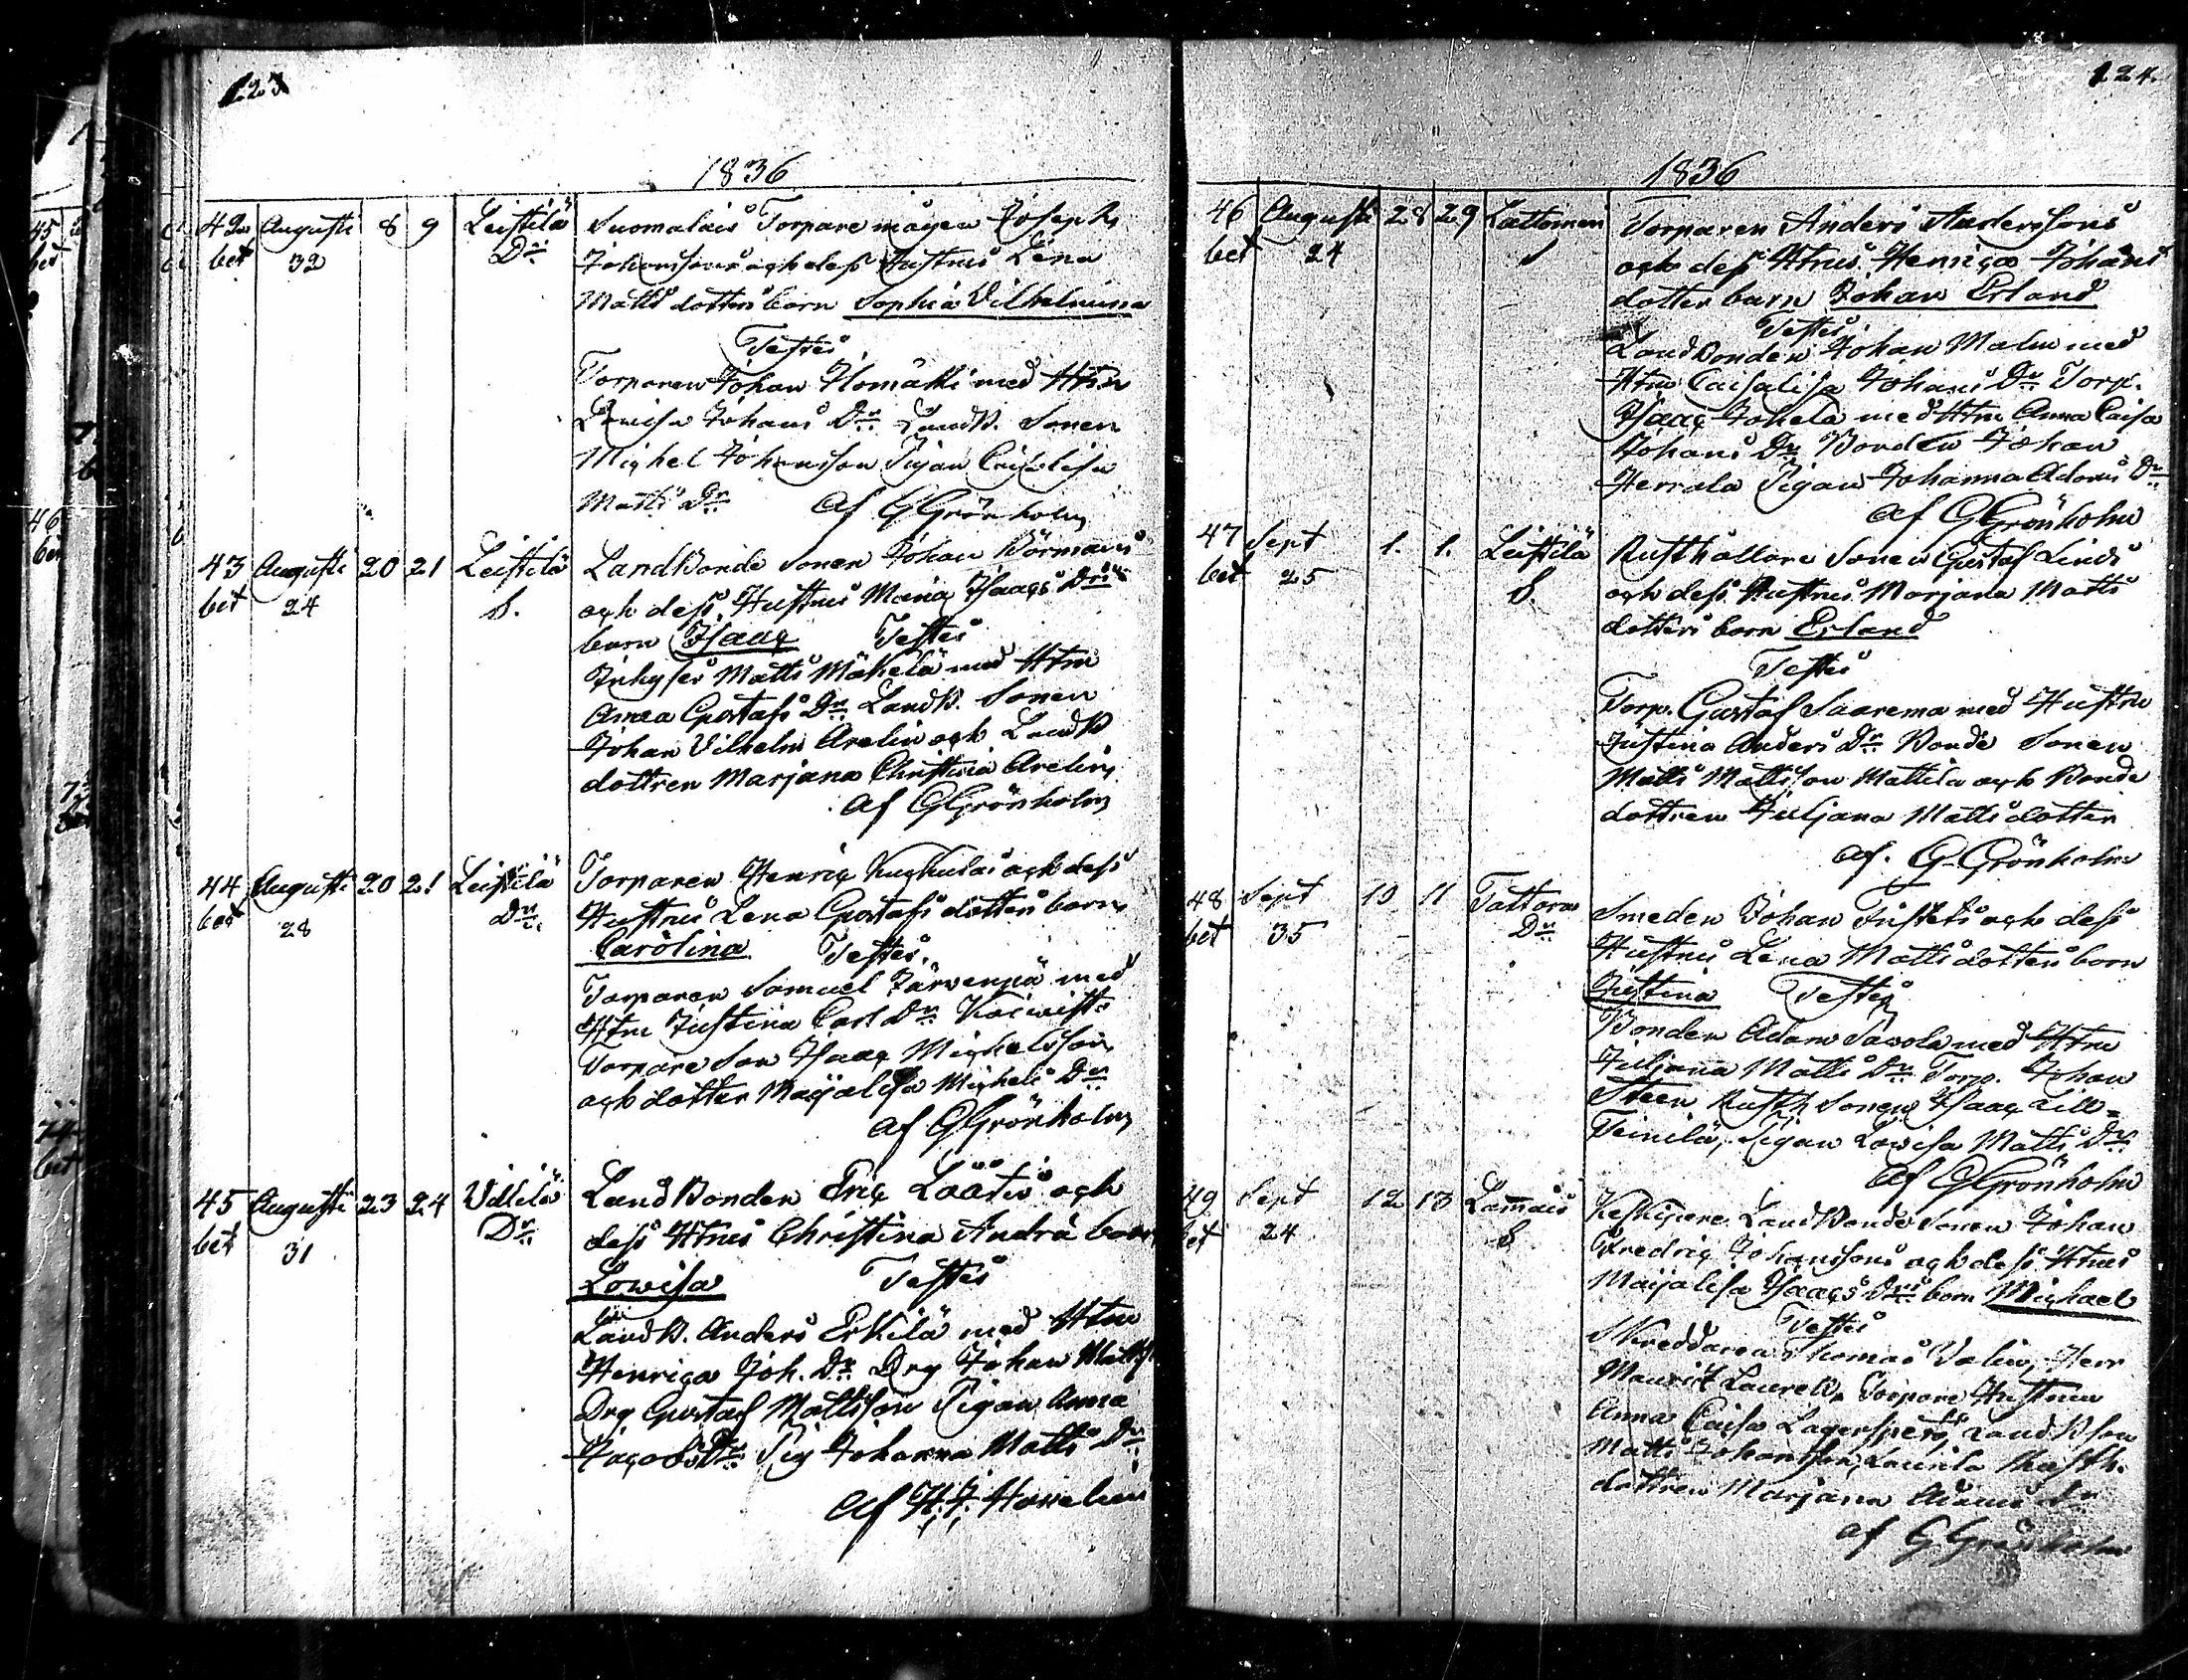 123
1836
42 Augusti 8 9 Leistilä Suomalais Torpare mågen Josephs
bet 32 Dr Johanssons och dess Hustrus Lena
Matts dotters barn Sophia Vilhelmina
Testes
Torparen Johan Ilomäki med Htru
Lovisa Johans Dr LandB. Sonen
Michel Johansson Pigan Caisalisa
Matts Dr af GGrönholm
43 Augusti 20 21 Leistilä LandBonde Sonen Johan Börmans
bet 24 S. och dess Hustrus Maria Isaacs Drs
barn Isaac Testes
Inhyses Matts Mäkelä med Htru
Anna Gustafs Dr LandB. Sonen
Johan Vilhelm Arelin och LandB
dottren Marjana Christina Arelin
af GGrönholm
44 Augusti 20 21 Leistilä Torparen Henric och dess
bet 28 Dr. Hustrus Lena Gustafs dotters barn
Carolina Testes.
Torparen Samuel Järvenpä med
Htru Justina Carl Dr Koivist
Torpare Son Isaac Michelsson
och dotter Maijalisa Michels Dr
af GGrönholm
45 Augusti 23 24 Villilä LandBonden Eric Läätis och
bet 31 Dr dess Htrus Christina Andra barn
Lowisa Testes
LandB. Anders Erkilä med Htru
Henrica Joh. Dr Drg Johan Matts
Drg Gustaf Mattsson Pigan Anna
Jacobs Dr Pig Johanna Matts Dr
af H. J. Havelin
124.
1836
46 Augusti 28 29 Lattomeri Torparen Anders Anderssons
bet 24 S och dess Htrus Henrica Johans
dotter barn Johan Erland
Testes
LandBonden Johan Malm med
Htru Caisalisa Johans Dr Torp.
Isaac Jokela med Htru Anna Caisa
Johans Dr Bonden Johan
Herrala Pigan Johanna Adams Dr
af GGrönholm
47 Sept 1. 1. Leistilä Rusthållare Sonen Gustaf Linds
bet 25 S. och dess Hustrus Marjana Matts
dotters barn Erland
Testes
Torp. Gustaf Saarema med Hustru
Justina Anders Dr Bonde Sonen
Matts Mattsson Mattila och Bonde
dottren Juljana Matts dotter
af. G. Grönholm
48 Sept 10 11 Tattara Smeden Johan och dess
bet 35 Dr Hustrus Lena Matts dotters barn
Justina Testes
Bonden Adam Savola med Htru
Juljana Matts Dr Torp. Johan
Steen Rusth Sonen Isaac Lill-
Teinilä, Pigan Lovisa Matts Dr
af GGrönholm
49 Sept 12 13 Lam̅ais LandBonde Sonen Johan
bet 24 S Fredric Johanssons och dess Htrus
Maijalisa Isaacs Drs barn Michael
Testes
Skreddaren Thomas Valin, Herr
Maurits Laurell, Torpare Hustrun
Anna Caisa Lagersperg LandBson
Matts Johansson Rusth.
dottren Marjana Adams Dr
af GGrönholm